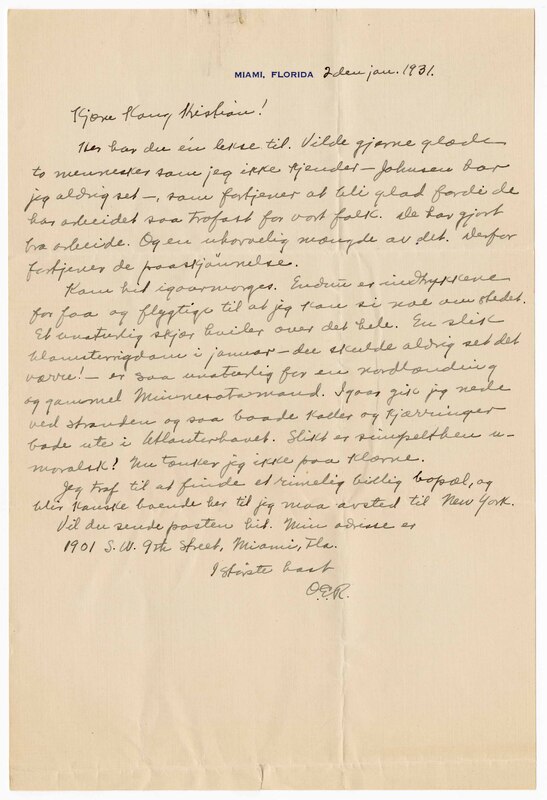 MIAMI, FLORIDA 2den jan. 1931.
Kjære Kong Kristian!
Her har du én lekse til. Vilde gjerne glæde
to mennesker som jeg ikke kjender — Johnsen har
jeg aldrig set —, som fortjener at bli glad fordi de
har arbeidet saa trofast for vort folk. De har gjort
bra arbeide. Og en uhorvelig mængde av det. Derfor
fortjener de paaskjønnelse.
Kom hit igaarmorges. Endnu er indtrykkene
for faa og flygtige til at jeg kan si noe om stedet.
Et unaturlig skjær hviler over det hele. En slik
blomsterrigdom i januar — du skulde aldrig set det
værre! — er saa unaturlig for en nordlænding
og gammel Minnesotamand. Igaar gik jeg nede
ved stranden og saa baade kaller og kjærringer
bade ute i Atlanterhavet. Slikt er simpelthen u-
moralsk! Nu tænker jeg ikke paa klærne.
Jeg traf til at finde et rimelig billig bopæl, og
blir kanske boende her til jeg maa avsted til New York.
Vil du sende posten hit. Min adresse er
1901 S.W. 9th Street, Miami, Fla.
I største hast
O.E.R.